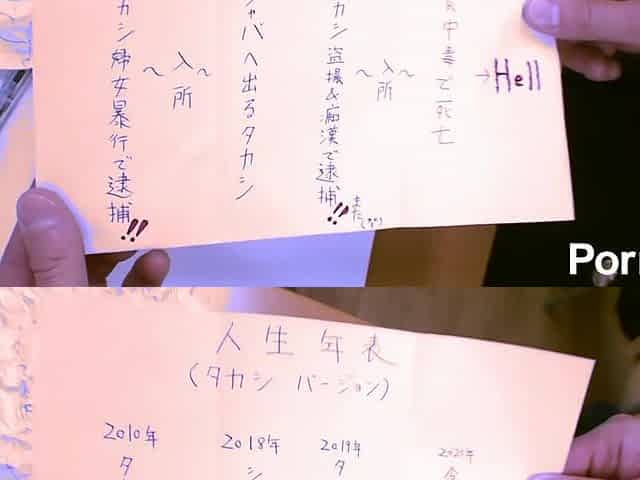 カシ婦女暴行で逮捕!!
～入所～
ャバへ出るタカシ
カシ盗撮&痴漢で逮捕!!
また
～入所～
中毒で死亡
→Hell
Por
人生年表
(タカシ バージョン)
2010年 2018年 2019年 2020年
タ シ タ